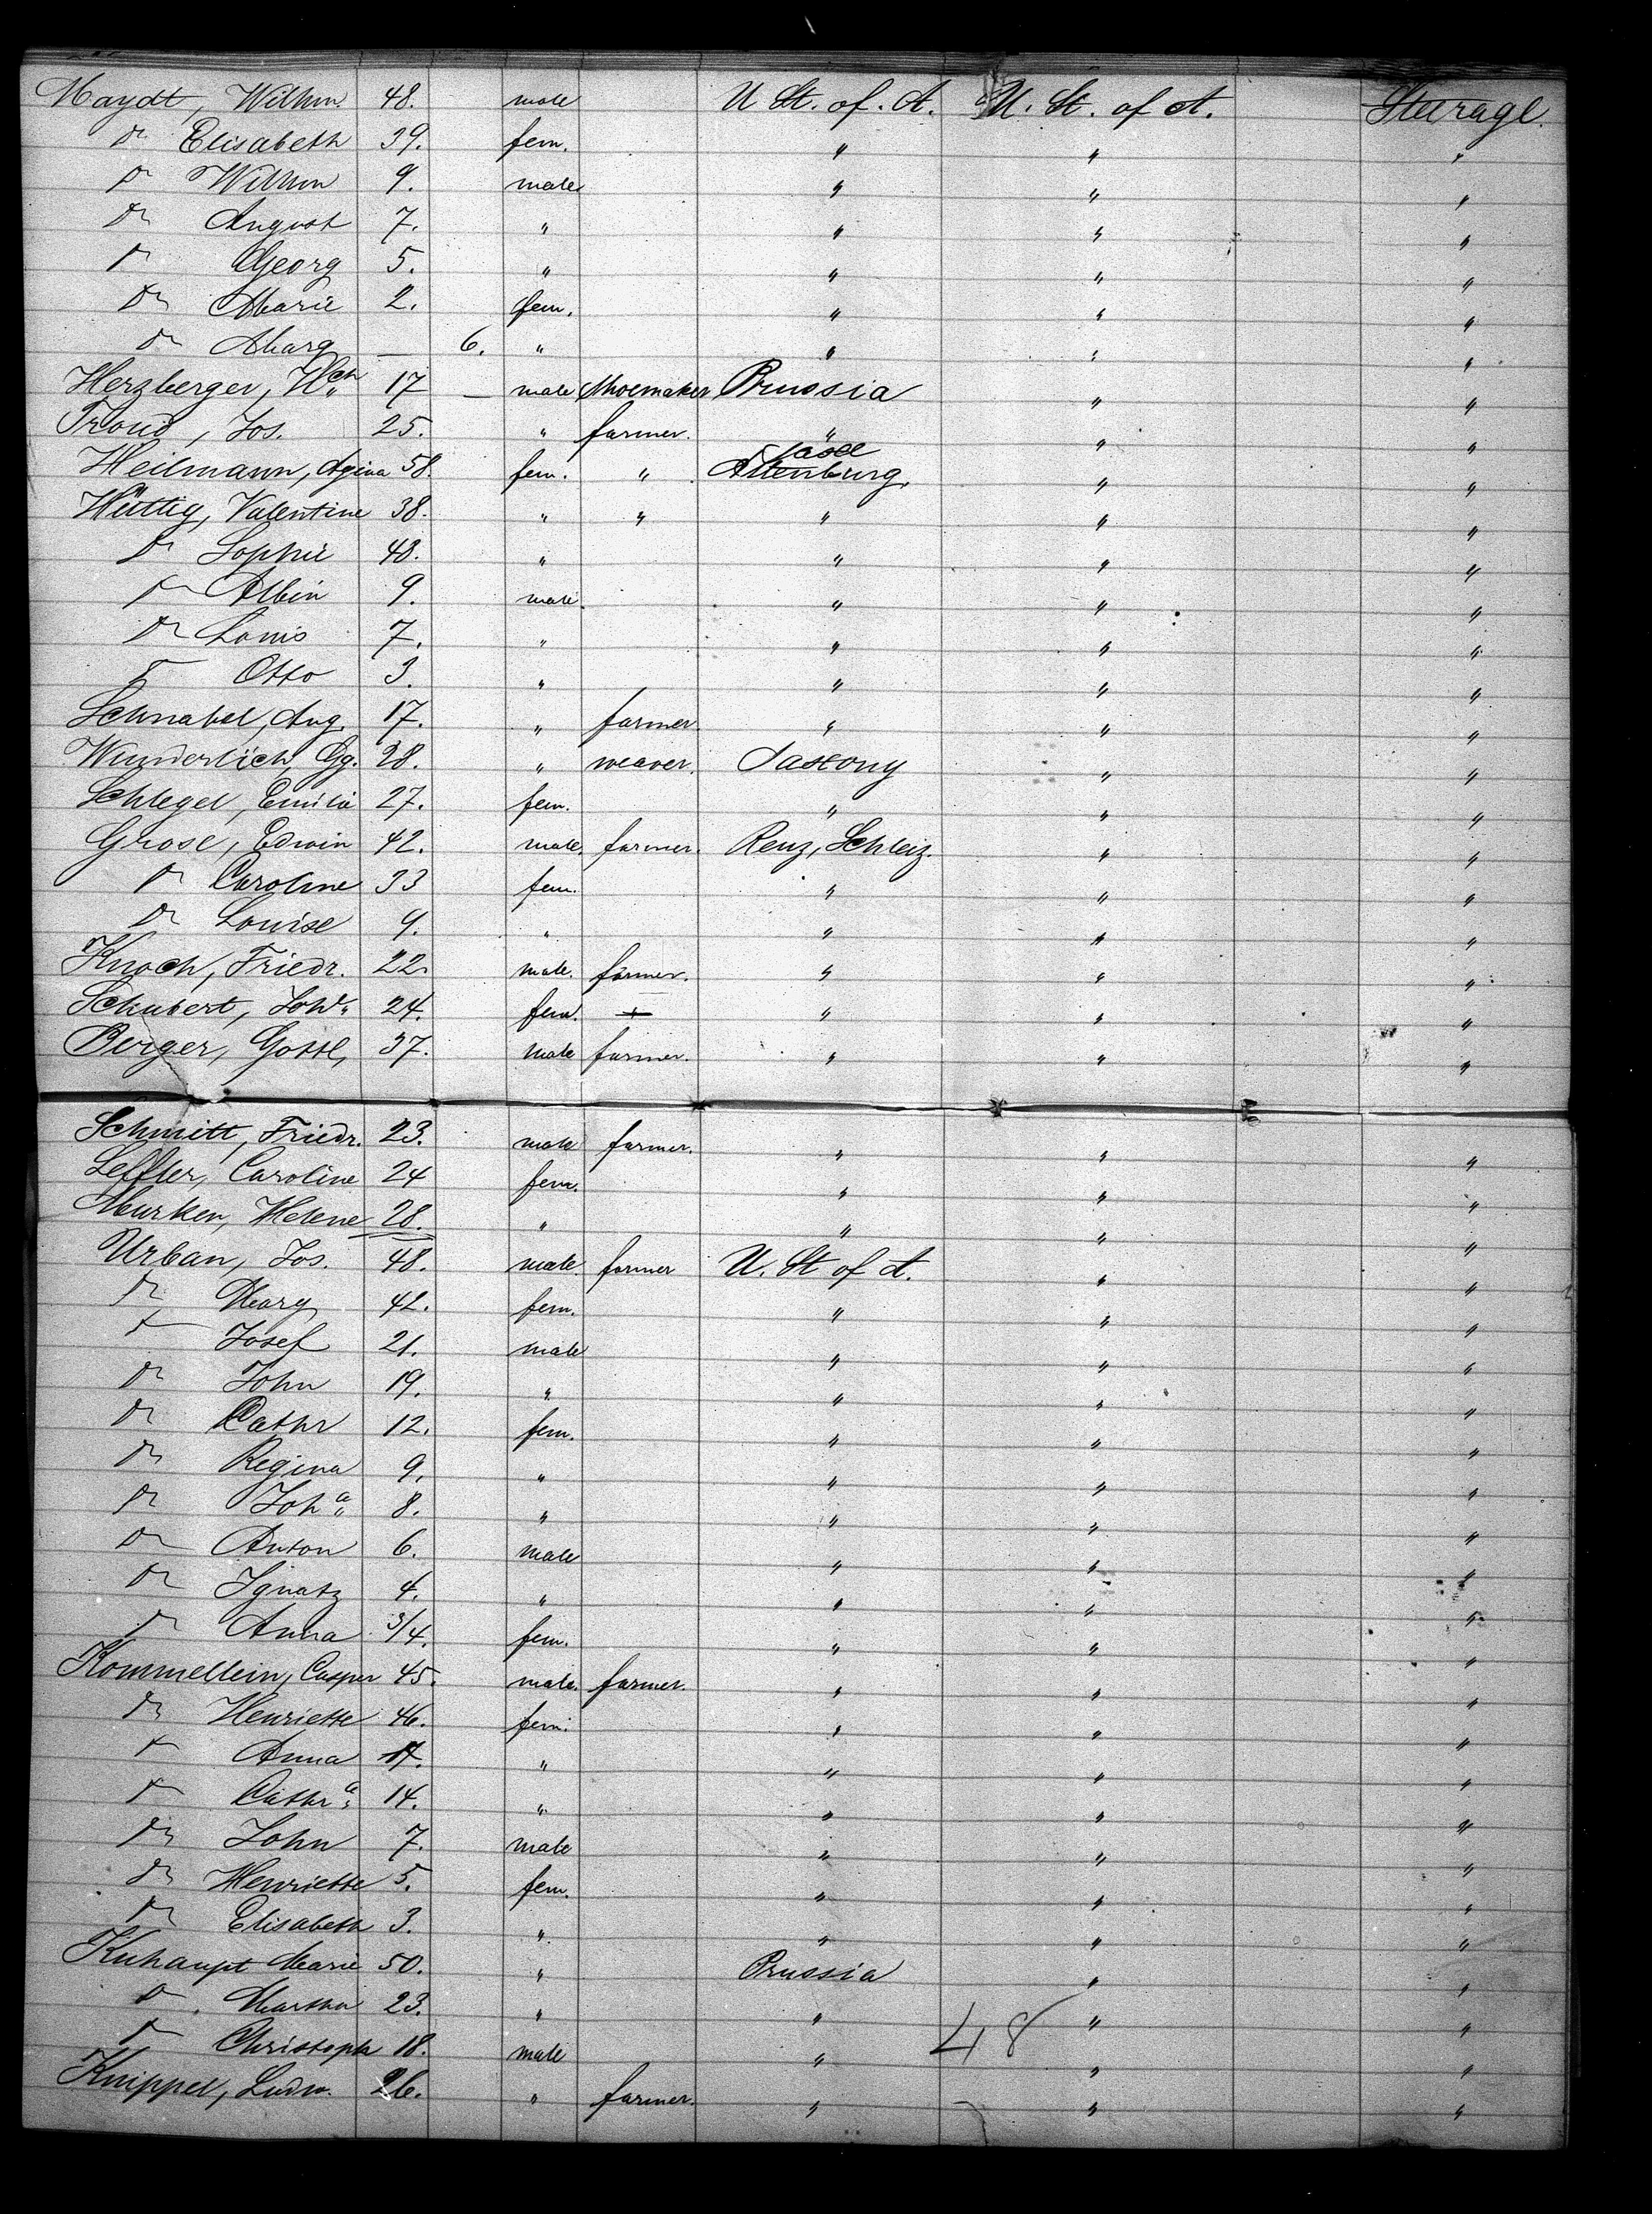 Maydt, Wilhm. 48. male U St. of. A. U. St. of A. Steerage.
do Elisabeth 39. fem. " " "
do Wilhm 9. male " " "
do August 7. " " " "
do Georg 5. " " " "
do Marie 2. fem. " " "
do Marg — 6. " " " "
Herzberger, Hch 17 — male Shoemaker Prussia " "
Troud, Jos. 25. " farmer. " " "
Heilmann, Agina 58. fem. " Altenburg, " "
Hüttig, Valentine 38. " " " " "
do Sophie 48. " " " "
do Albin 9. male. " " "
do Louis 7. " " " "
do Otto 3. " " " "
Schnabel, Aug. 17. " farmer. " " "
Wunderlich, Gg. 28. " weaver. Saxony " "
Schlegel, Emilie 27. fem. " " "
Grose, Edwin 42. male. farmer. Reuz, Schleiz. " "
do Caroline 33 fem. " " "
do Louise 9. " " " "
Knoch, Friedr. 22. male. farmer. " " "
Schubert, Joh. 24. fem. " " "
Berger, Gottl, 37. male farmer. " " "
Schmitt, Friedr. 23. male farmer. " " "
Leffler, Caroline 24 fem. " " "
Murken, Helene 28. " " " "
Urban, Jos. 48. male. farmer U. St of A. " "
do Marg 42. fem. " " "
do Josef 21. male " " "
do John 19. " " " "
do Cathr 12. fem. " " "
do Regina 9. " " " "
do Joha 8. " " " "
do Anton 6. male " " "
do Ignatz 4. " " " "
do Anna 3/4. fem. " " "
Kommellein, Casper 45. male. farmer. " " "
do Henriette 46. fem. " " "
do Anna 17. " " " "
do Cathra 14. " " " "
do John 7. male " " "
do Henriette 5. fem. " " "
do Elisabeth 3. " " " "
Kuhaupt Marie 50. " Prussia " "
do Martha 23. " " " "
do Christoph 18. male " 48 " "
Knippel, Ludw. 26. " farmer. " " "